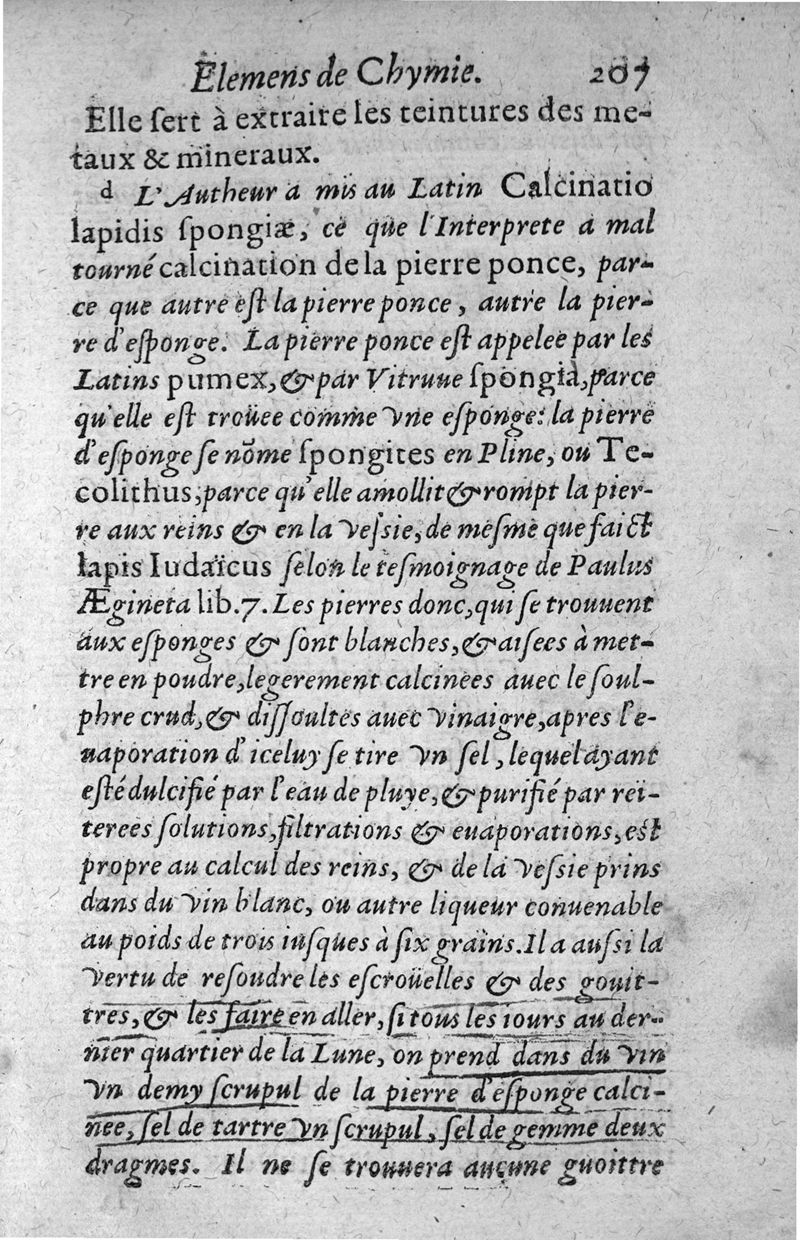 Elemens de Chymie. 207
Elle sert à extraire les teintures des me-
taux & mineraux.
d L'Autheur a mis au Latin Calcinatio
lapidis spongiæ, ce que l'Interprete a mal
tourné calcination de la pierre ponce, par-
ce que autre est la pierre ponce, autre la pier-
re d'esponge. La pierre ponce est appelee par les
Latins pumex, & par Vitruue spongia, parce
qu'elle est troüee comme vne esponge: la pierre
d'esponge se nõme spongites en Pline, ou Te-
colithus, parce qu'elle amollit & rompt la pier-
re aux reins & en la vessie, de mesme que faict
lapis Iudaïcus selon le tesmoignage de Paulus
Ægineta lib. 7. Les pierres donc, qui se trouuent
aux esponges & sont blanches, & aisees à met-
tre en poudre, legerement calcinees auec le soul-
phre crud, & dissoultes auec vinaigre, apres l'e-
uaporation d'iceluy se tire vn sel, lequel ayant
esté dulcifié par l'eau de pluye, & purifié par rei-
terees solutions, filtrations & euaporations, est
propre au calcul des reins, & de la vessie prins
dans du vin blanc, ou autre liqueur conuenable
au poids de trois iusques à six grains. Il a aussi la
vertu de resoudre les escroüelles & des gouit-
tres, & les faire en aller, si tous les iours au der-
nier quartier de la Lune, on prend dans du vin
vn demy scrupul de la pierre d'esponge calci-
nee, sel de tartre vn scrupul, sel de gemme deux
dragmes. Il ne se trouuera aucune guoittre